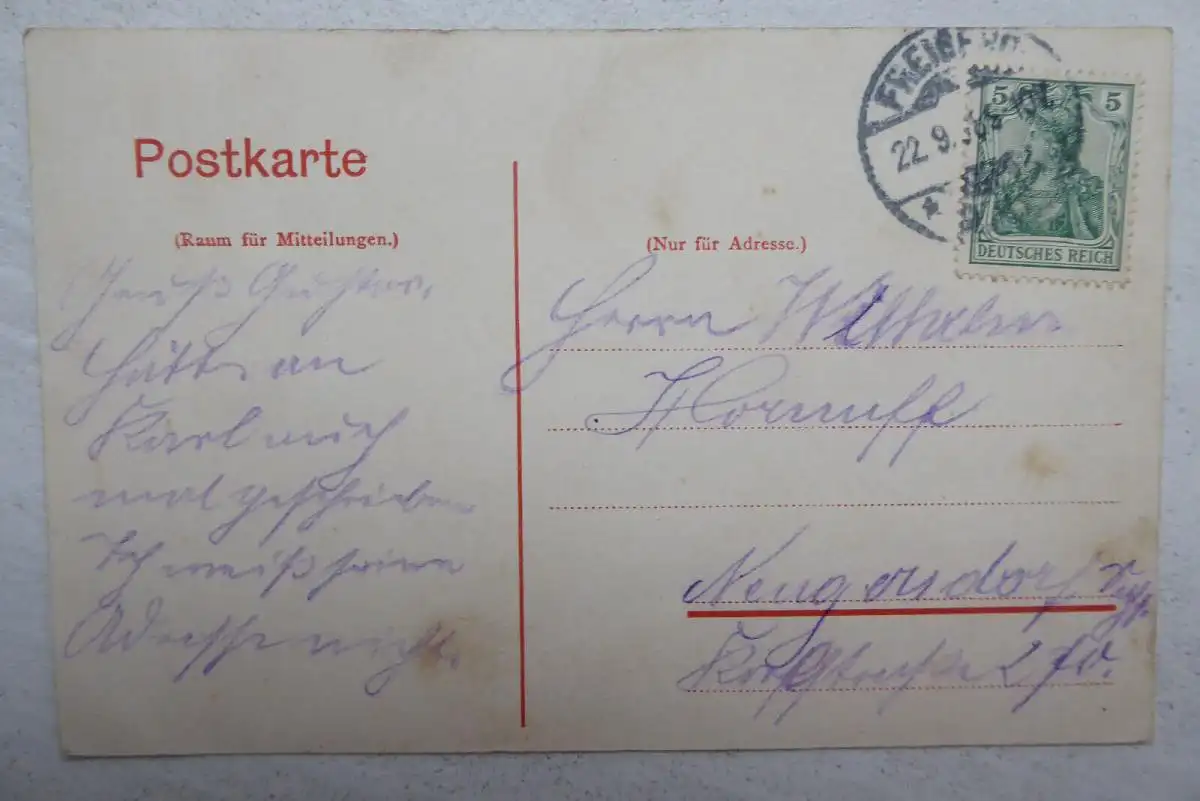 Postkarte
(Raum für Mitteilungen.)
Gruß Gustav.
Hätte an
Karl auch
mal geschrieben
Ich weiß seine
Adresse nicht.
FREIBERG
22.9.
5 5
DEUTSCHES REICH
(Nur für Adresse.)
Herrn Wilhelm
Hornuff
Neugersdorf